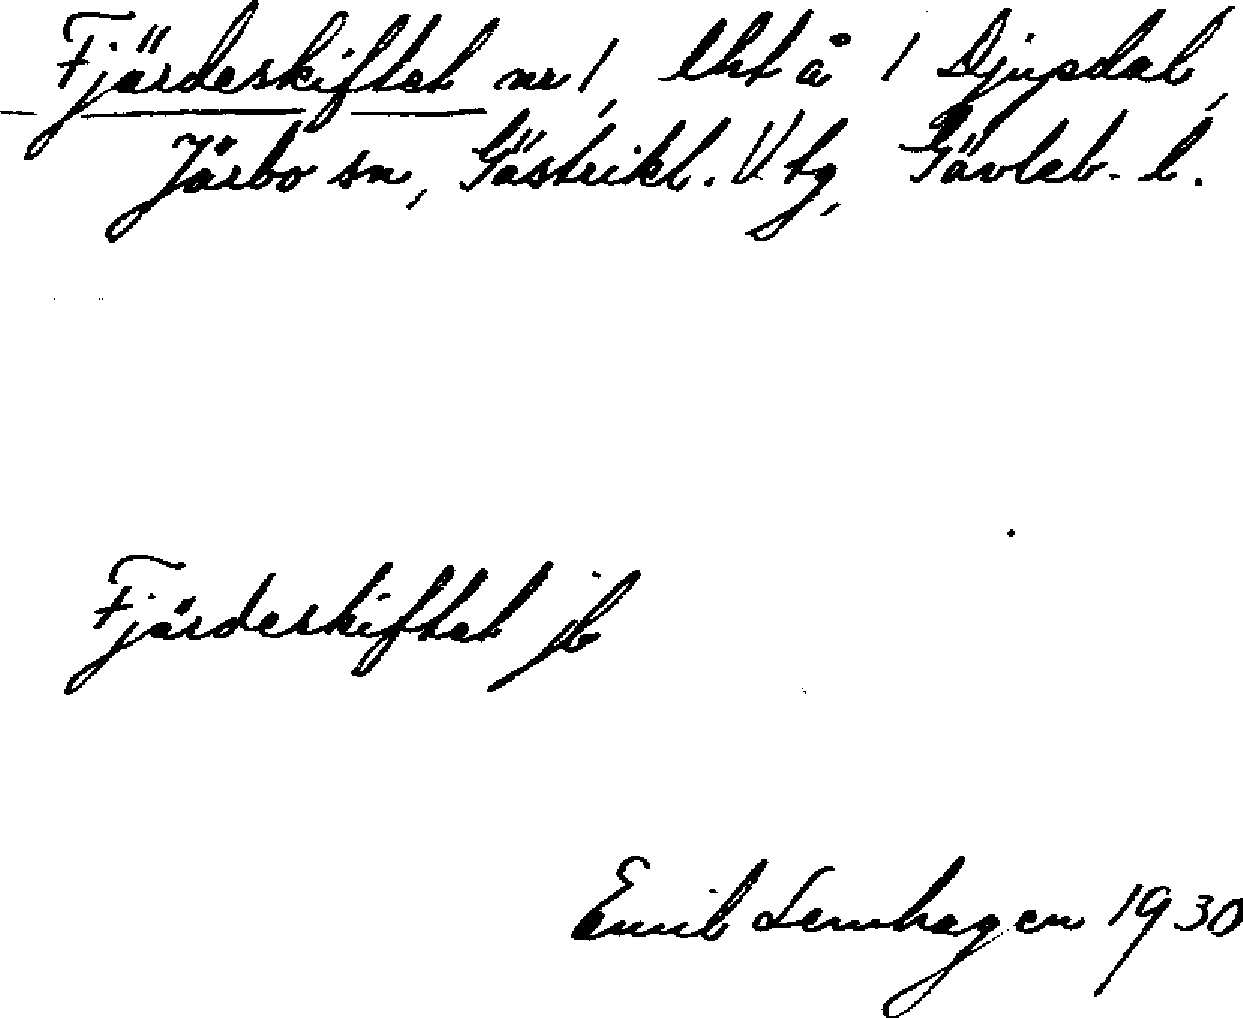 Fjärdeskiftet nr 1, lht å 1 Djupdal,
Järbo sn, Gästrikl. V tg, Gävleb. l.
Fjärdeskiftet jb
Emil Lernhagen 1930